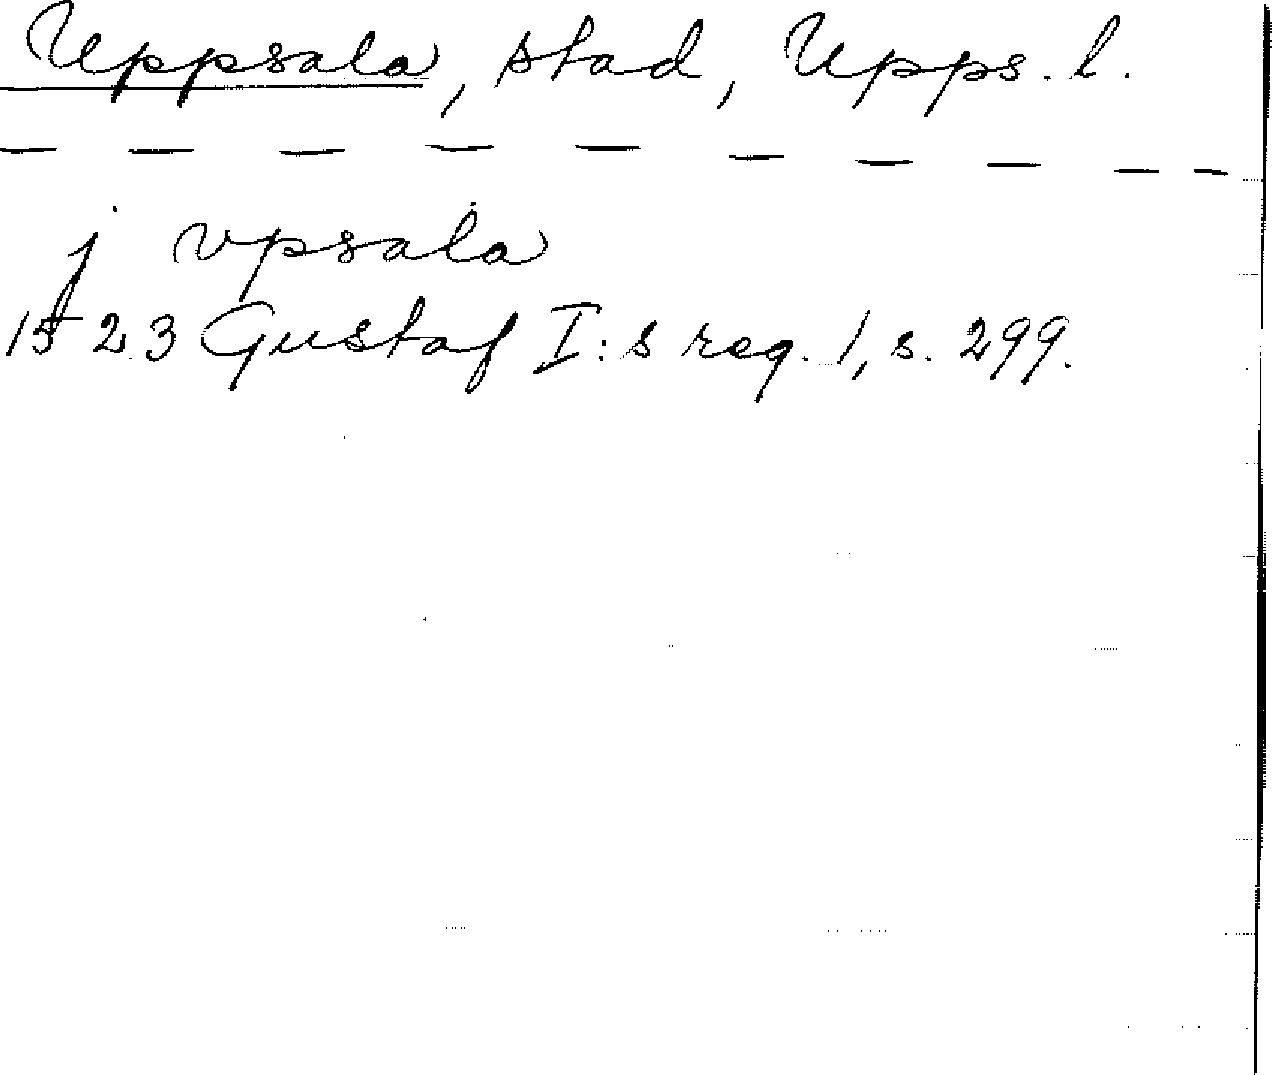 Uppsala, stad, Upps. l.
j vpsala
1523 Gustaf I:s reg. 1, s. 299.